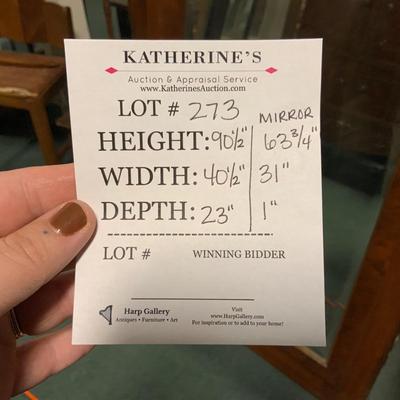 KATHERINE'S
Auction & Appraisal Service
www.KatherinesAuction.com
LOT # 273
MIRROR
HEIGHT: 90½" 63 3/4"
WIDTH: 40½" 31"
DEPTH: 23" 1"
LOT # WINNING BIDDER
Harp Gallery
Antiques • Furniture • Art
Visit
www.HarpGallery.com
For inspiration or to add to your home!